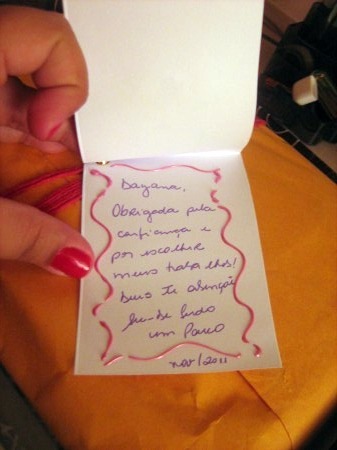 Dayana,
Obrigada pela
confiança e
por escolher
meus trabalhos!
Deus te abençoe
um Pouco
nov/2011